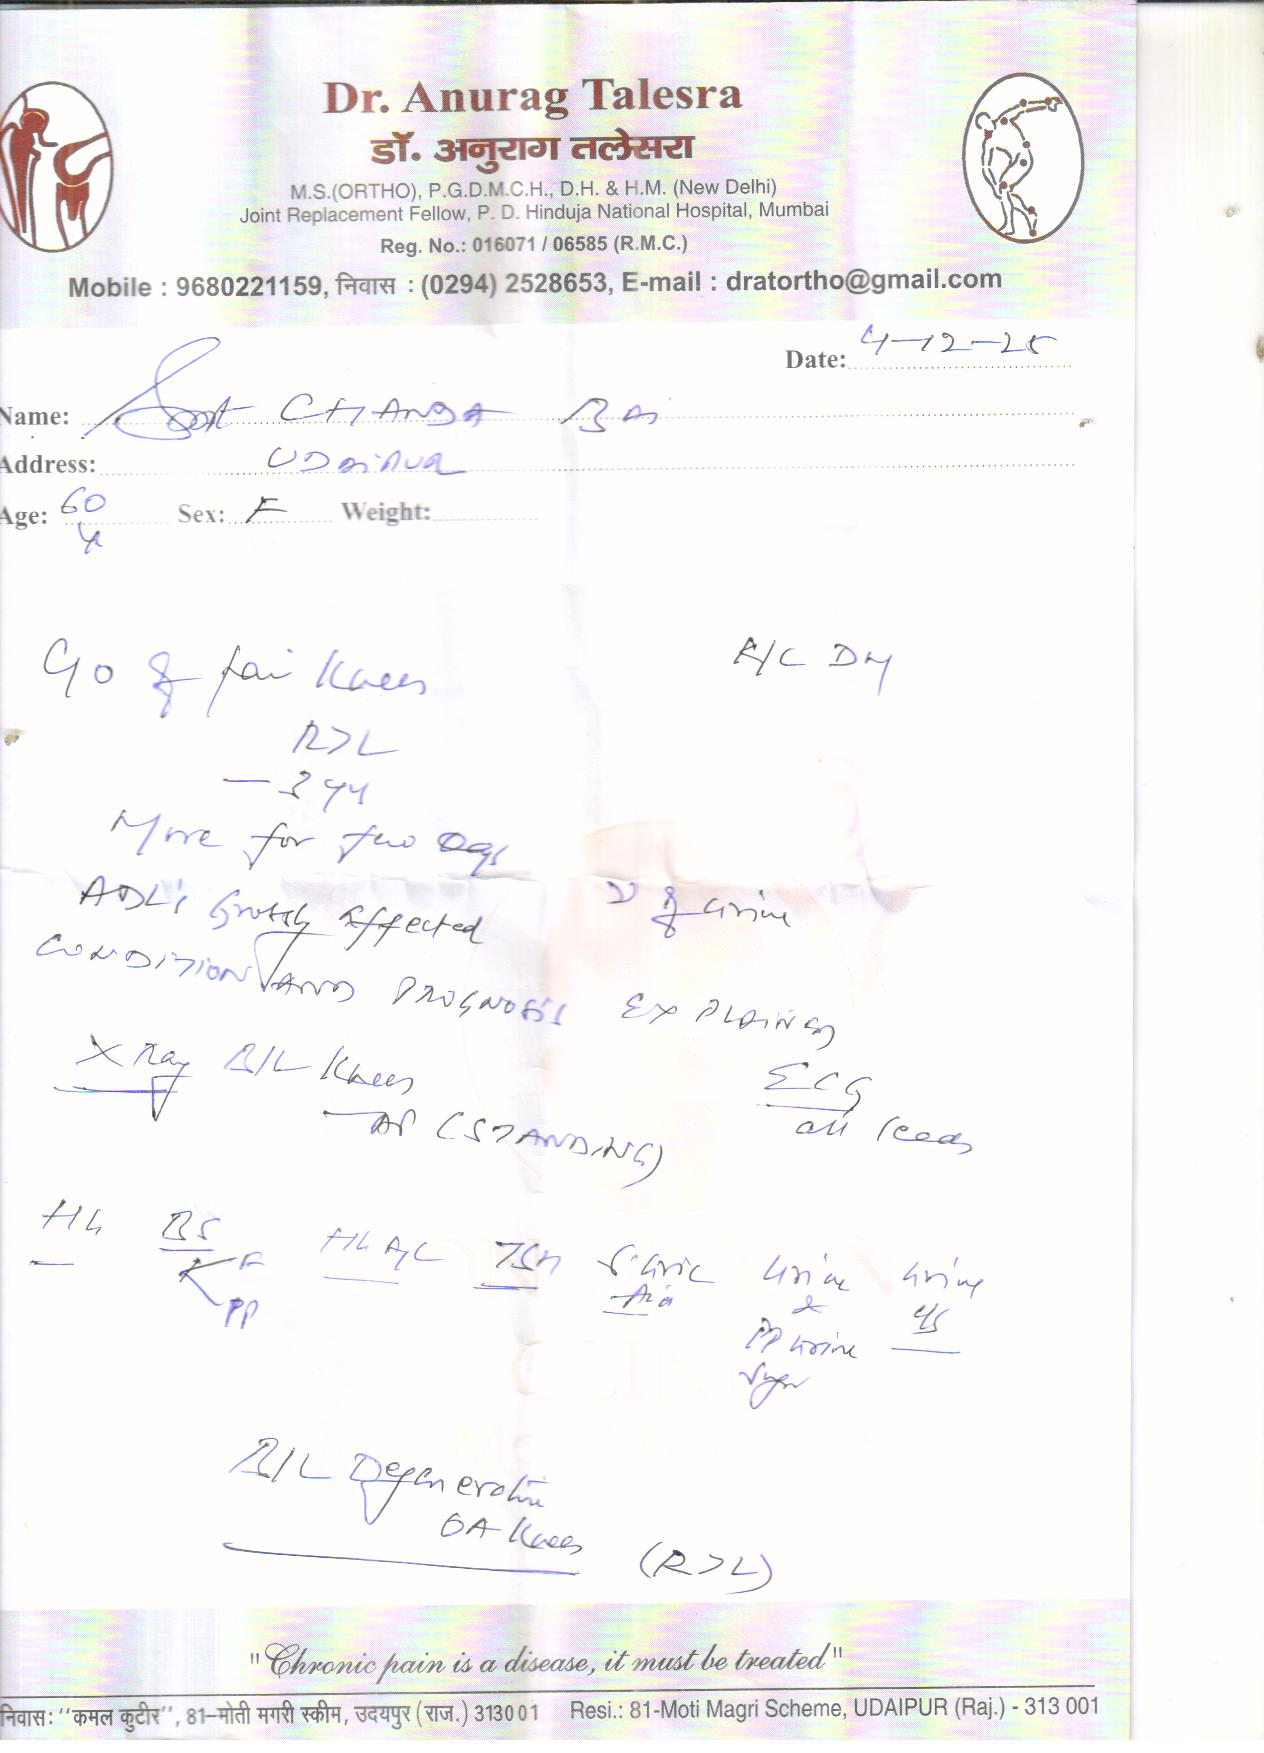 Dr. Anurag Talesra
डॉ. अनुराग तलेसरा
M.S.(ORTHO), P.G.D.M.C.H., D.H. & H.M. (New Delhi)
Joint Replacement Fellow, P. D. Hinduja National Hospital, Mumbai
Reg. No.: 016071 / 06585 (R.M.C.)
Mobile : 9680221159, निवास : (0294) 2528653, E-mail : dratortho@gmail.com
Date: 4-12-25
Name: CHANDA BAi
Address: UDAIPUR
Age: 60 Sex: F Weight:
of pain Knees
R>L
More for few
ADL's Grossly Affected
of Urine
CONDITION AND PROGNOSIS EXPLAINED
X Ray B/L Knees
ECG
AP (STANDING)
all leads
Hb BS HbA1C TSH S. Uric Urine Urine
F Acid &
PP PP Urine
Sugar
B/L Degenerative
OA Knees
(R>L)
"Chronic pain is a disease, it must be treated"
निवास: "कमल कुटीर", 81–मोती मगरी स्कीम, उदयपुर (राज.) 313001 Resi.: 81-Moti Magri Scheme, UDAIPUR (Raj.) - 313 001